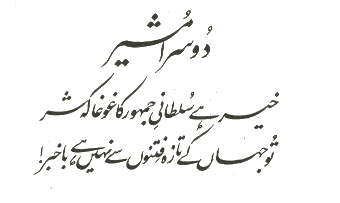 دُوسرا مُشیر
خیر ہے سُلطانیِ جمہور کا غوغا کہ شر
تُو جہاں کے تازہ فِتنوں سے نہیں ہے باخبر!